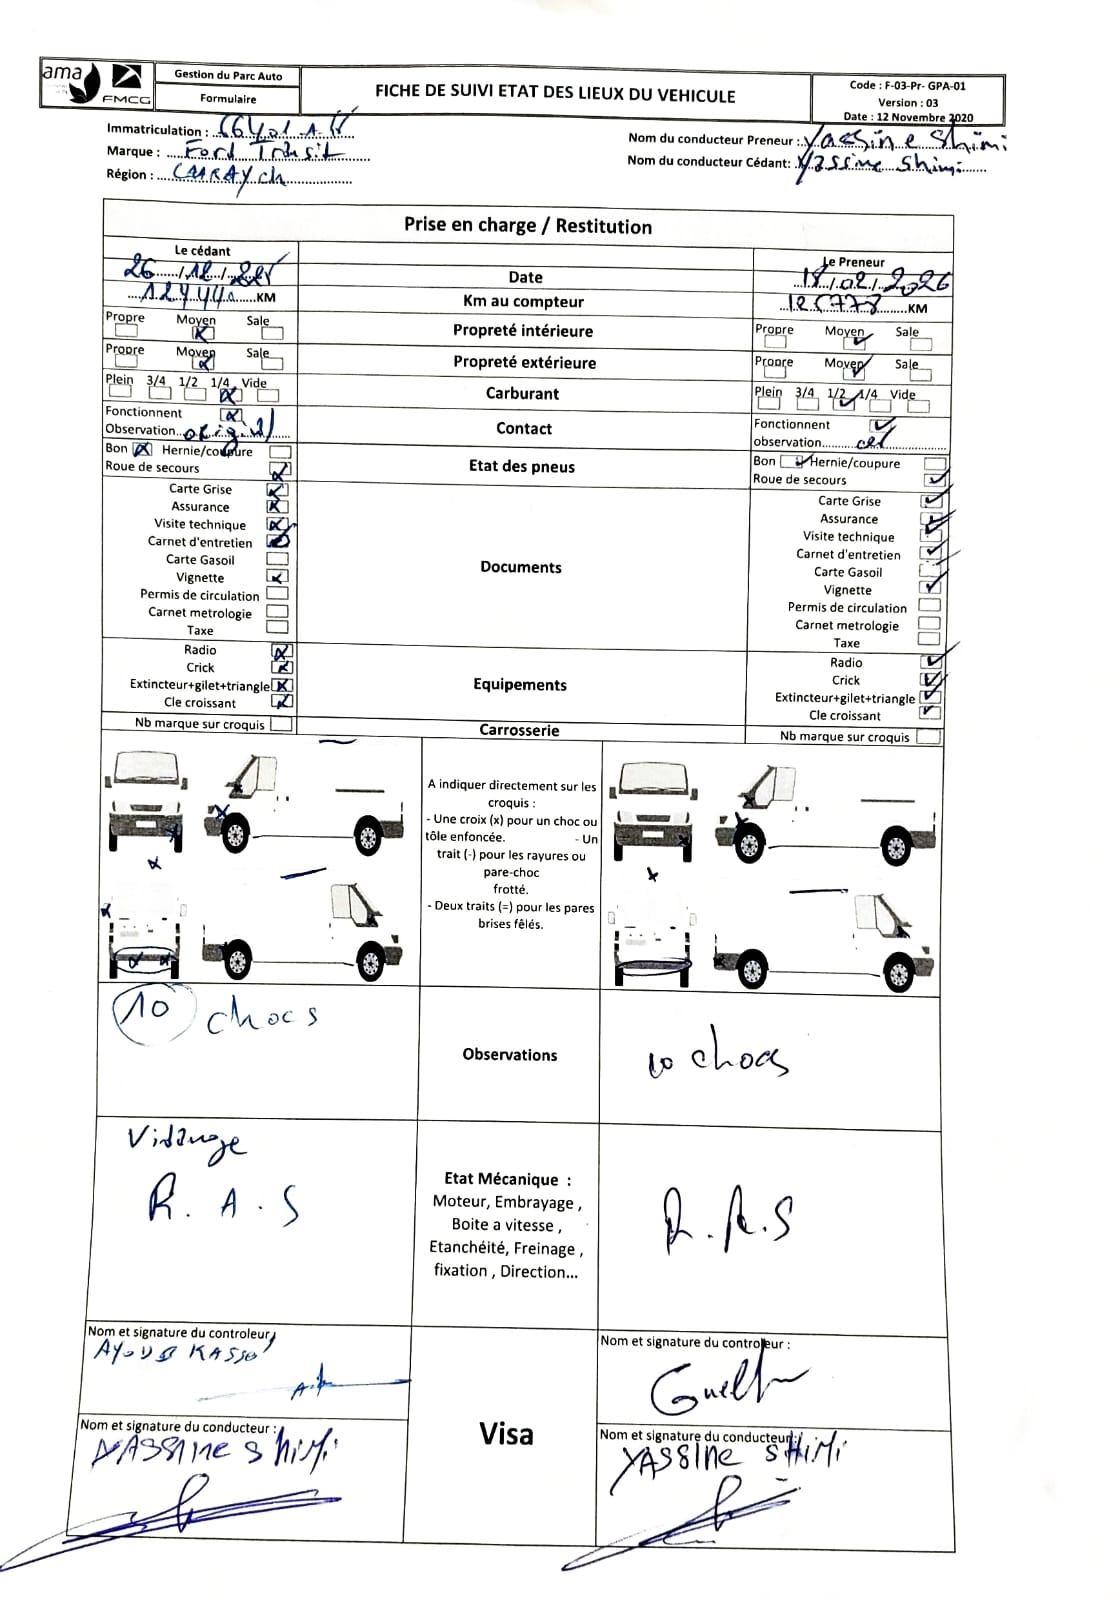 ama
FMCG
Gestion du Parc Auto
Formulaire
FICHE DE SUIVI ETAT DES LIEUX DU VEHICULE
Code : F-03-Pr- GPA-01
Version : 03
Date : 12 Novembre 2020
Immatriculation :
Marque : Ford Transit
Région :
Nom du conducteur Preneur : Yassine Shimi
Nom du conducteur Cédant: Yassine Shimi
Prise en charge / Restitution
Le cédant
Le Preneur
26 / 12 /
Date
18 / 02 / 2026
KM
Km au compteur
125778 KM
Propre Moyen Sale
Propreté intérieure
Propre Moyen Sale
Propre Moyen Sale
Propreté extérieure
Propre Moyen Sale
Plein 3/4 1/2 1/4 Vide
Carburant
Plein 3/4 1/2 1/4 Vide
Fonctionnent
Observation
Contact
Fonctionnent
observation
Bon Hernie/coupure
Roue de secours
Etat des pneus
Bon Hernie/coupure
Roue de secours
Carte Grise
Assurance
Visite technique
Carnet d'entretien
Carte Gasoil
Vignette
Permis de circulation
Carnet metrologie
Taxe
Documents
Carte Grise
Assurance
Visite technique
Carnet d'entretien
Carte Gasoil
Vignette
Permis de circulation
Carnet metrologie
Taxe
Radio
Crick
Extincteur+gilet+triangle
Cle croissant
Equipements
Radio
Crick
Extincteur+gilet+triangle
Cle croissant
Nb marque sur croquis
Carrosserie
Nb marque sur croquis
A indiquer directement sur les
croquis :
- Une croix (x) pour un choc ou
tôle enfoncée. - Un
trait (-) pour les rayures ou
pare-choc
frotté.
- Deux traits (=) pour les pares
brises fêlés.
10 chocs
Observations
10 chocs
Vidange
R.A.S
Etat Mécanique :
Moteur, Embrayage ,
Boite a vitesse ,
Etanchéité, Freinage ,
fixation , Direction...
R.A.S
Nom et signature du controleur
AYOUB KASSO
Visa
Nom et signature du controleur :
Nom et signature du conducteur :
YASSINE SHIMI
Nom et signature du conducteur:
YASSINE SHIMI